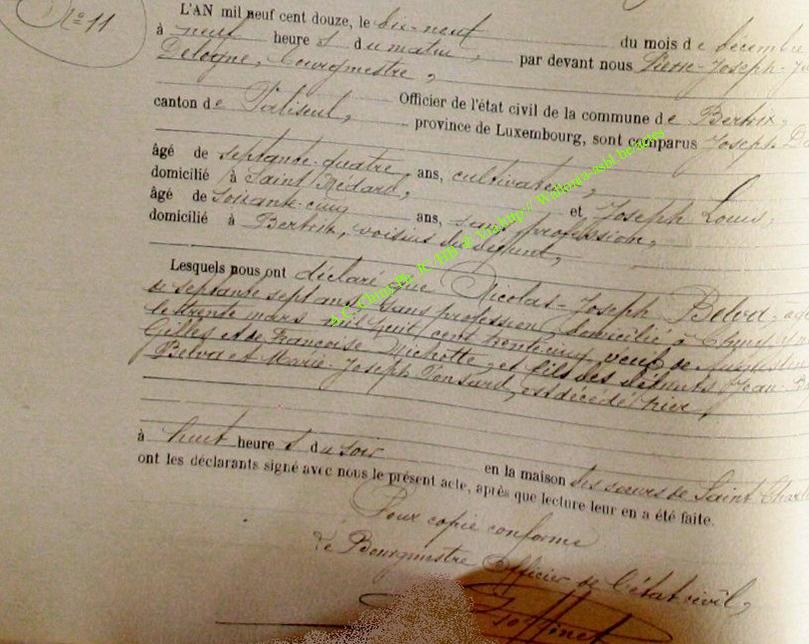 N° 11
L'AN mil neuf cent douze, le dix-neuf du mois de décembre
à neuf heures du matin, par devant nous Pierre-Joseph-
Delogne, bourgmestre,
Officier de l'état civil de la commune de Bertrix,
canton de Paliseul, province de Luxembourg, sont comparus Joseph
âgé de septante-quatre ans, cultivateur,
domicilié à Saint Médard, et Joseph Louis,
âgé de soixante-cinq ans, sans profession,
domicilié à Bertrix, voisins du défunt,
Lesquels nous ont déclaré que Nicolas-Joseph Belva, âgé
de septante sept ans, sans profession, domicilié à Chiny,
le trente mars mil huit cent trente-cinq, veuf de
Gilles et de Françoise Michotte, et fils des défunts Jean-
Belva et Marie-Joseph Ponsard, est décédé hier,
à huit heures du soir en la maison des sœurs de Saint Charles
ont les déclarants signé avec nous le présent acte, après que lecture leur en a été faite.
Pour copie conforme
Le Bourgmestre Officier de l'état civil,